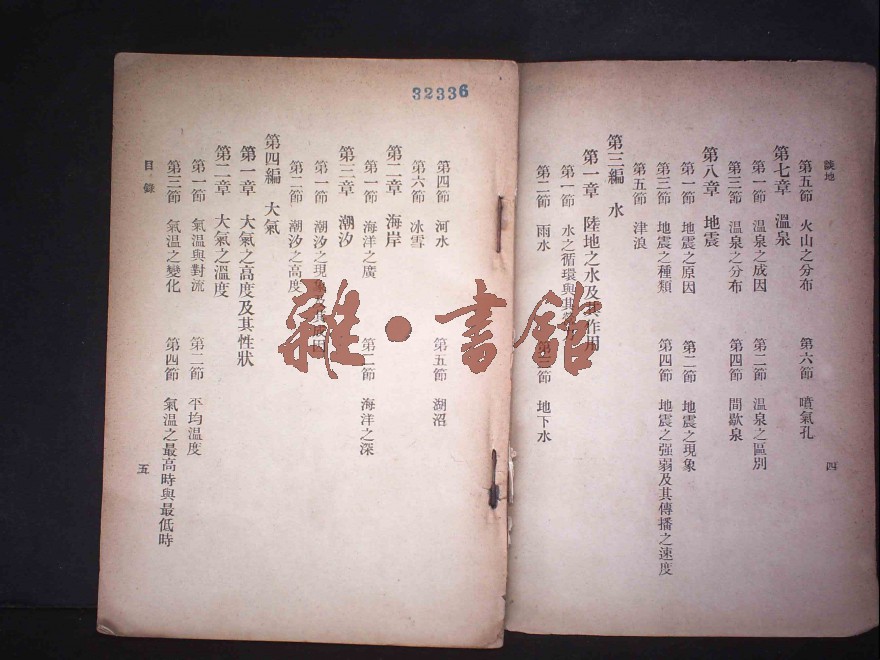 談地
第五節 火山之分布 第六節 噴氣孔
第七章 溫泉
第一節 溫泉之成因 第二節 溫泉之區別
第三節 溫泉之分布 第四節 間歇泉
第八章 地震
第一節 地震之原因 第二節 地震之現象
第三節 地震之種類 第四節 地震之强弱及其傳播之速度
第五節 津浪
第三編 水
第一章 陸地之水及其作用
第一節 水之循環與其
第二節 雨水 第三節 地下水
四
32336
第四節 河水 第五節 湖沼
第六節 冰雪
第二章 海岸
第一節 海洋之廣 第二節 海洋之深
第三章 潮汐
第一節 潮汐之現象及其成因
第二節 潮汐之高度
第四編 大氣
第一章 大氣之高度及其性狀
第二章 大氣之溫度
第一節 氣溫與對流 第二節 平均溫度
第三節 氣溫之變化 第四節 氣溫之最高時與最低時
目錄
五
雜•書館